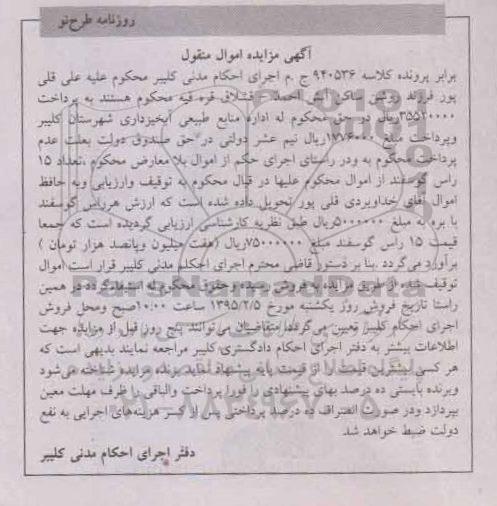 روزنامه طرح نو
آگهی مزایده اموال منقول
برابر پرونده کلاسه ۹۴۰۵۳۶ ج .م اجرای احکام مدنی کلیبر محکوم علیه علی قلی
پور فرزند روشن ساکن آیش احمد - قشلاق قره قیه محکوم هستند به پرداخت
۳۵۵۲۰۰۰۰ریال در حق محکوم له اداره منابع طبیعی آبخیزداری شهرستان کلیبر
وپرداخت مبلغ ۱۷۷۶۰۰۰ریال نیم عشر دولتی در حق صندوق دولت بعلت عدم
پرداخت محکوم به ودر راستای اجرای حکم از اموال بلا معارض محکوم ،تعداد ۱۵
راس گوسفند از اموال محکوم علیها در قبال محکوم به توقیف وارزیابی وبه حافظ
اموال آقای خداویردی قلی پور تحویل داده شده است که ارزش هرراس گوسفند
با بره به مبلغ ۵۰۰۰۰۰۰ریال طبق نظریه کارشناسی ارزیابی گردیده است که جمعا
قیمت ۱۵ راس گوسفند مبلغ ۷۵۰۰۰۰۰۰ریال (هفت میلیون وپانصد هزار تومان )
برآورد می گردد .بنا بر دستور قاضی محترم اجرای احکام مدنی کلیبر قرار است اموال
توقیف شده از طریق مزایده به فروش رسیده وحقوق محکوم له استیفاگردد در همین
راستا تاریخ فروش روز یکشنبه مورخ ۱۳۹۵/۲/۵ ساعت ۱۰:۰۰صبح ومحل فروش
اجرای احکام کلیبر تعیین می گردد. متقاضیان می توانند پنج روز قبل از مزایده جهت
اطلاعات بیشتر به دفتر اجرای احکام دادگستری کلیبر مراجعه نمایند بدیهی است که
هر کسی بیشترین قیمت را از قیمت پایه پیشنهاد نماید برنده مزایده شناخته می شود
وبرنده بایستی ده درصد بهای پیشنهادی را فورا پرداخت والباقی را ظرف مهلت معین
بپردازد ودر صورت انصراف ده درصد پرداختی پس از کسر هزینه های اجرایی به نفع
دولت ضبط خواهد شد.
دفتر اجرای احکام مدنی کلیبر